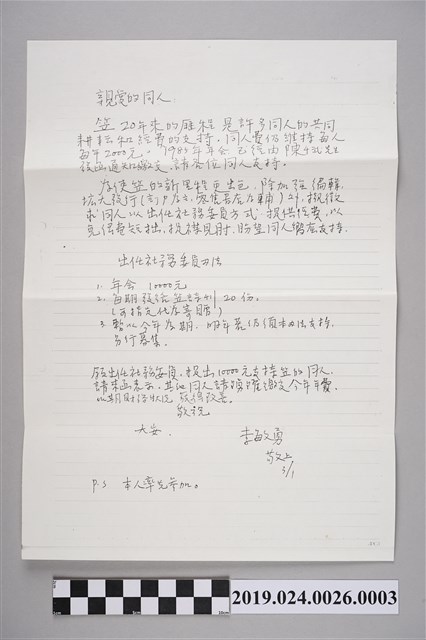 親愛的同人
笠20年來的歷程是許多同人的共同
耕耘和經費的支持。同人費仍維持每人
每年2000元。1984年年会已經由陳
發函通知繳交,請各位同人支持。
為使笠的新里程更出色,除加強編輯
拡大發行 外,擬徵
求同人以出任社務委員方式,提供經費,以
免經費短拙,捉襟見肘,盼望同人響應支持。
出任社務委員辦法
1. 年会 10000元
2. 每期發給笠詩刊20份。
(可指定代為寄贈)
3. 暫以今年為期,明年若仍須本办法支持,
另行募集。
願出任社務委員,提出10000元支持笠的同人,
請来函表示,其他同人請踴躍繳交今年年費,
以期財務狀況 改善。
敬祝
大安.
李敏勇
敬上
3/1
P.S 本人率先参加。
2019.024.0026.0003